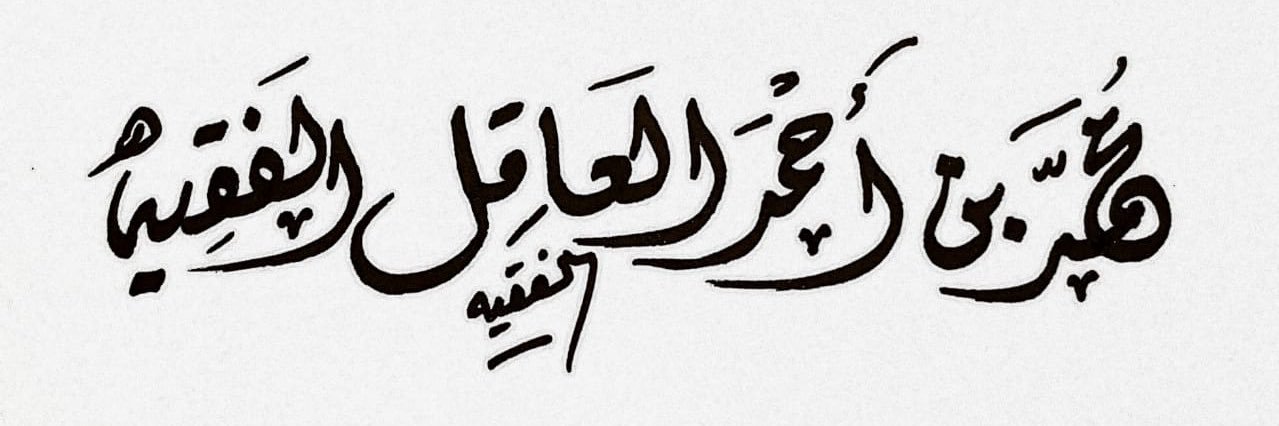 مُحَمَّد بن أَحْمَد العَاقِل الفَقِيه
الفقيه